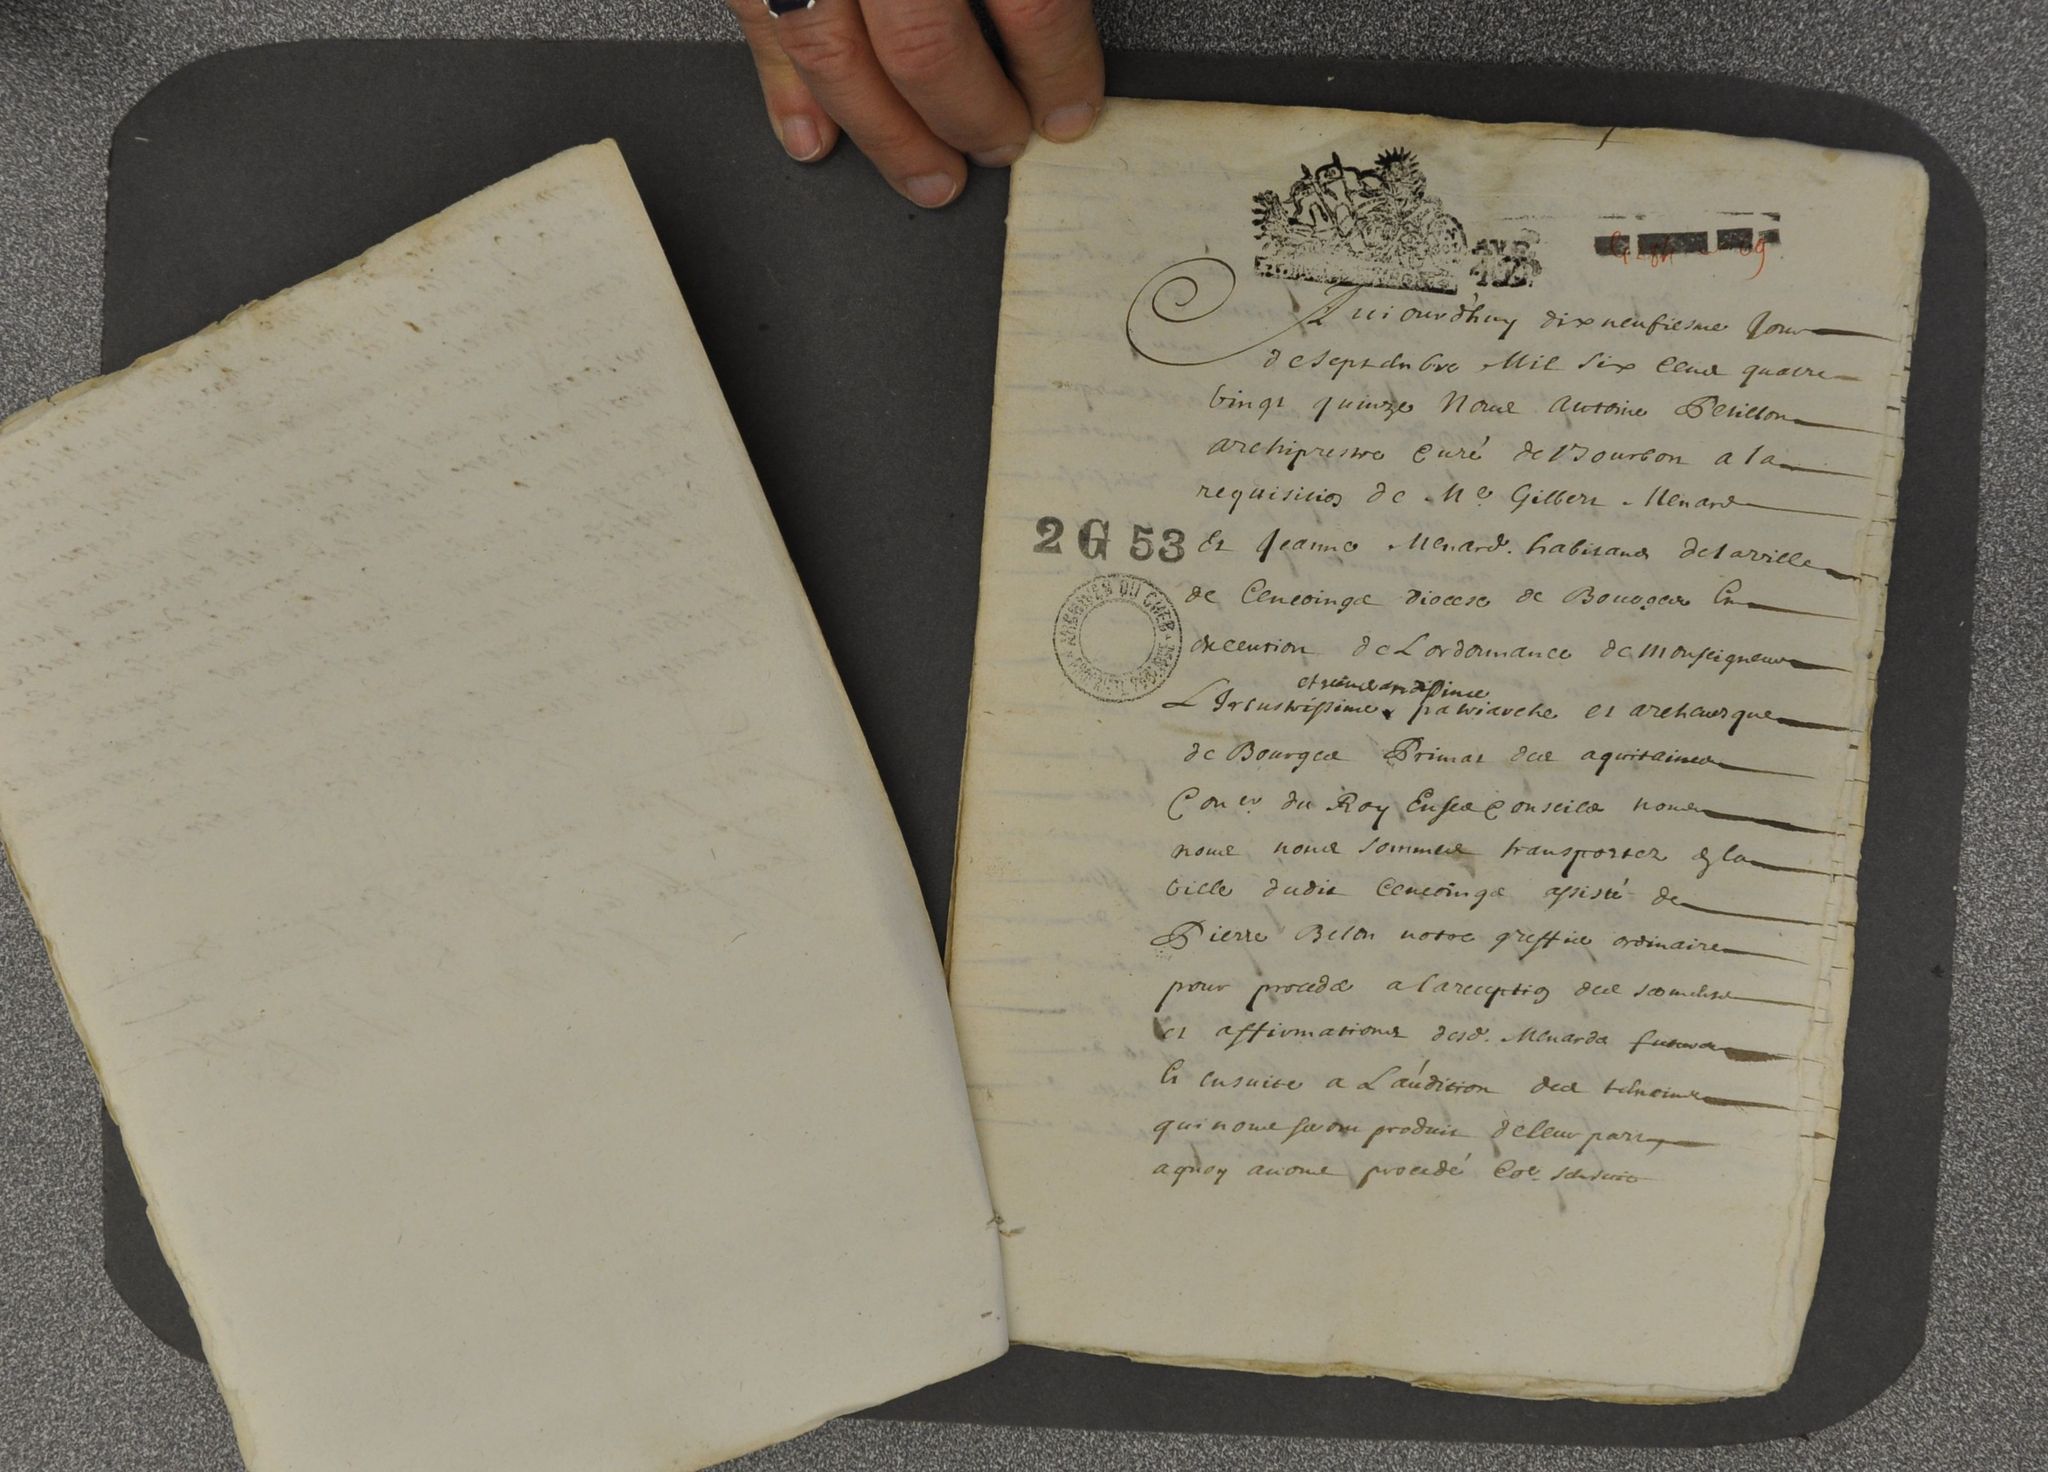 Aujourdhuy dixneufiesme Jour
de septembre Mil six cens quatre
vingt quinze Nous Antoine Petillon
archiprestre curé de Bourbon a la
requisition de Me. Gilbert Menard
2 G 53
et Jeanne Menard. habitans de la ville
de Cencoings diocese de Bourges En
execution de L ordonnance de Monseigneur
ARCHIVES DU CHER
et reverendissime
L Illustrissime patriarche et archevesque
de Bourges Primat des aquitaines
Con er. du Roy En ses Conseils nous
nous nous sommes transportez en la
ville dudit Cencoings assisté de
Pierre Belon notre greffier ordinaire
pour proceder a la reception des serments
et affirmations desd. Menards
Et ensuite a L'audition des temoins
qui nous seront produit de leur part,
a quoy avons procedé Coe. sensuit